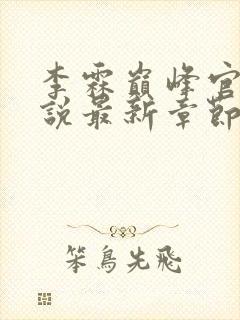 李霖巔峰官
說最新章節
笨鳥先飛